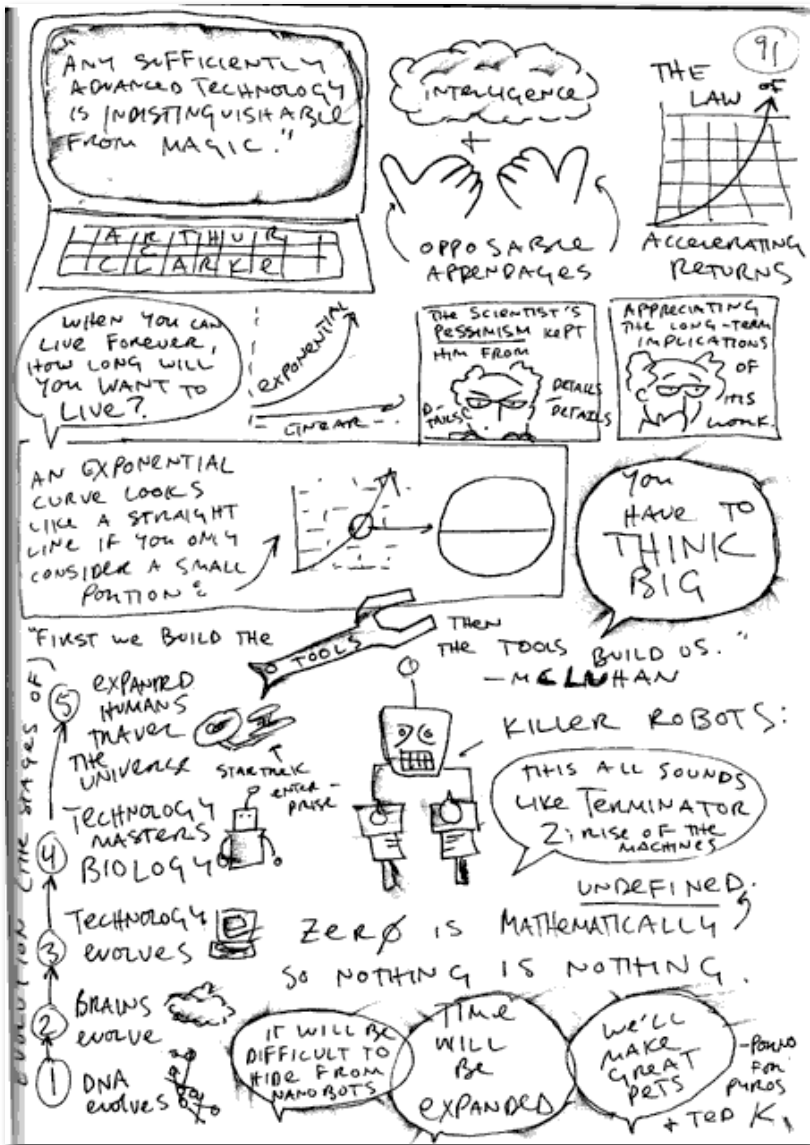 91
"ANY SUFFICIENTLY
ADVANCED TECHNOLOGY
IS INDISTINGUISHABLE
FROM MAGIC."
ARTHUR
CLARKE
INTELLIGENCE
+
OPPOSABLE
APPENDAGES
THE
LAW OF
ACCELERATING
RETURNS
WHEN YOU CAN
LIVE FOREVER,
HOW LONG WILL
YOU WANT TO
LIVE?
EXPONENTIAL
LINEAR
THE SCIENTIST'S
PESSIMISM KEPT
HIM FROM
DETAILS
DETAILS
D-
TAILS
APPRECIATING
THE LONG-TERM
IMPLICATIONS
OF
HIS
WORK.
AN EXPONENTIAL
CURVE LOOKS
LIKE A STRAIGHT
LINE IF YOU ONLY
CONSIDER A SMALL
PORTION:
YOU
HAVE TO
THINK
BIG
"FIRST WE BUILD THE
TOOLS
THEN
THE TOOLS BUILD US."
—MCLUHAN
EVOLUTION (THE STAGES OF)
5 EXPANDED
HUMANS
TRAVEL
THE
UNIVERSE
STAR TREK
ENTER-
PRISE
KILLER ROBOTS:
THIS ALL SOUNDS
LIKE TERMINATOR
2: RISE OF THE
MACHINES
4 TECHNOLOGY
MASTERS
BIOLOGY
UNDEFINED.
3 TECHNOLOGY
EVOLVES
ZERØ IS MATHEMATICALLY
SO NOTHING IS NOTHING.
2 BRAINS
EVOLVE
1 DNA
EVOLVES
IT WILL BE
DIFFICULT TO
HIDE FROM
NANOBOTS
TIME
WILL
BE
EXPANDED
WE'LL
MAKE
GREAT
PETS
-PORNO
FOR
PYROS
+ TED K.